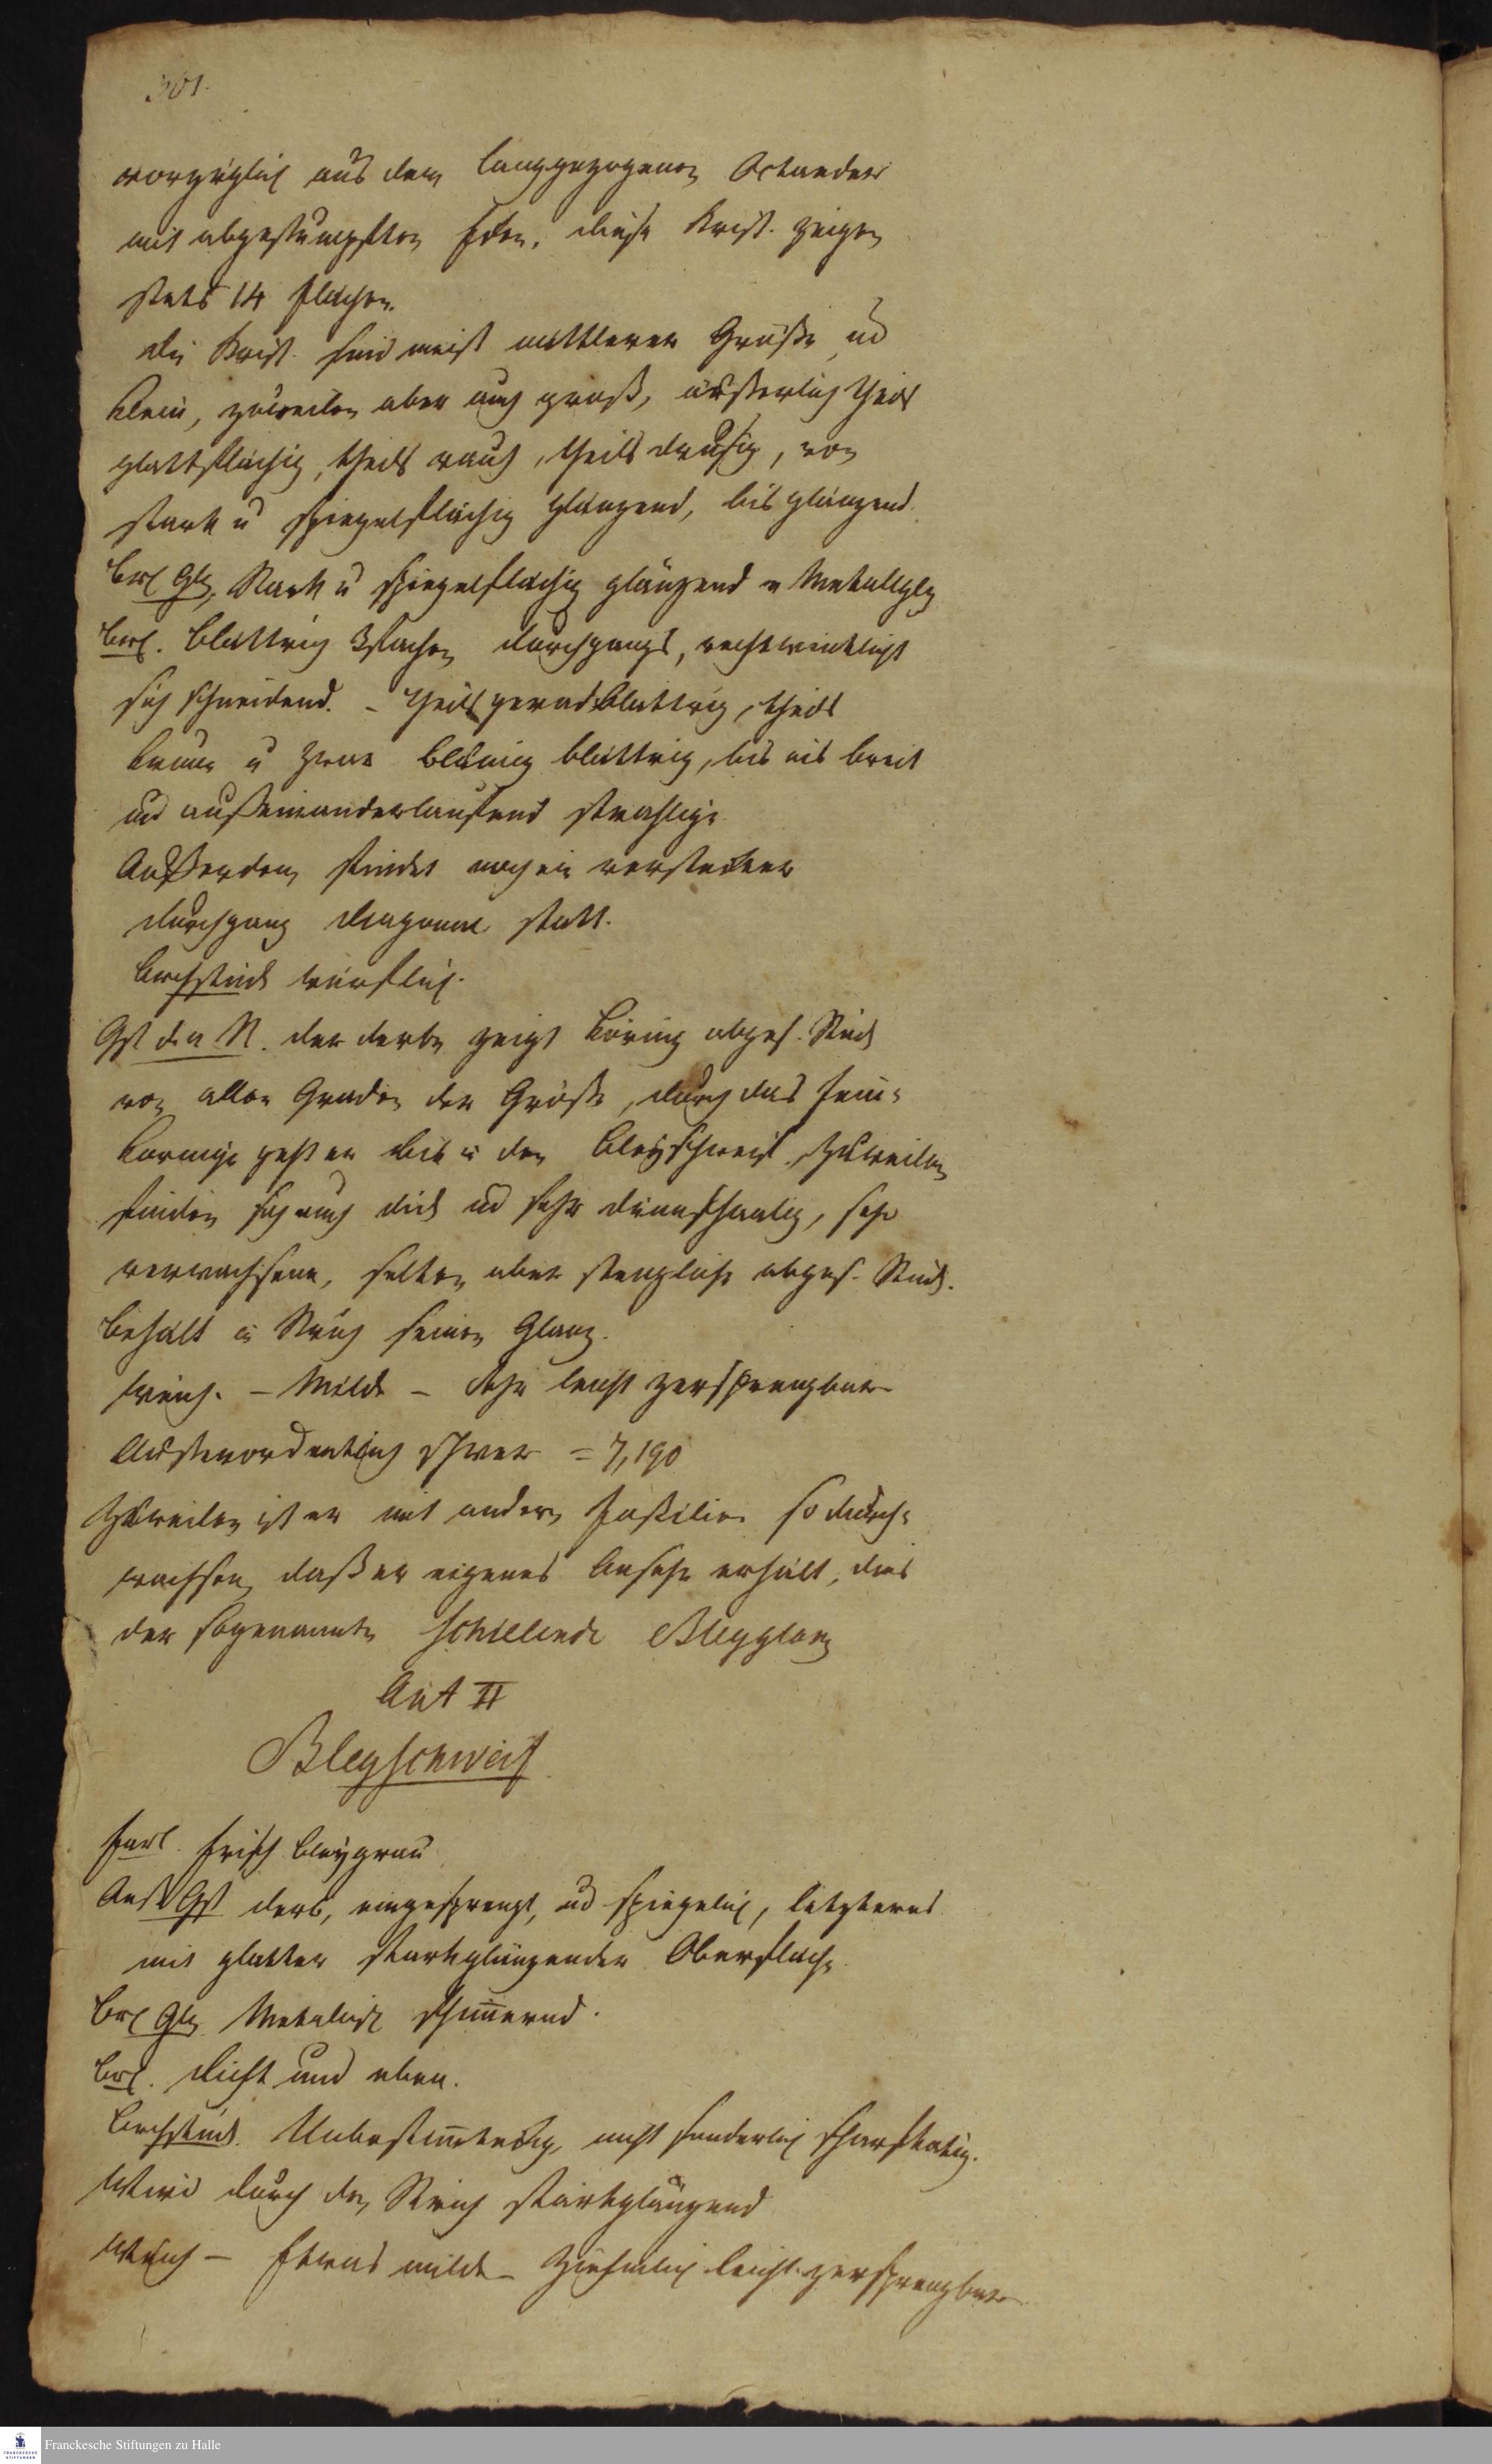 301.
vorzüglich aus dem langgezogenen Octaeder
mit abgestumpften Ecken, diese Krist. zeigen
stets 14 Flächen.
die Krist. sind meist mittlerer Größe ud
klein, zuweilen aber auch groß, äußerlich theils
glattflächig, theils rauh, theils drusig, von
stark u spiegelflächig glänzend, bis glänzend.
Brch Glz, Stark u spiegelflächig glänzend v Metallglz
Brch. blättrig 3fachen durchgangs, rechtwinklicht
sich schneidend. – Theils geradblättrig, theils
krum u zwar blumig blättrig, bis ins breit
und auseinanderlaufend strahlige
Außerdem findet noch ein versteckter
durchgang diagonal statt.
Brchstück würflich.
Gst d. a St. der derbe zeigt körnig abges. Stück
von allen Graden der Größe, durch das fein-
körnige geht er bis in den Bleyschweif, zuweilen
finden sich auch dick ud sehr dünnschaalig, sehr
verwachsene, selten aber stengliche abges. Stück.
behält im Strich seinen Glanz.
Weich. – Milde – Sehr leicht zersprengbar
Außerordentlich schwer = 7,190
Zuweilen ist er mit andern Foßilien so durch-
wachsen, daß er eigenes Ansehn erhält, dies
der sogenannte schillernde Bleyglanz
Art II
Bleyschweif
Farb. frisch bleygrau
Aeß Gst derb, eingesprengt, ud spieglich, letzteres
mit glatter starkglänzender Oberfläche
Brch Glz Metallisch schim̄ernd.
Brch. dicht und eben.
Brchstück. Unbestim̄teckig, nicht sonderlich scharfkantig.
Wird durch den Strich starkglänzend
Weich – Etwas milde – Ziehmlich leicht zersprengbar
Franckesche Stiftungen zu Halle